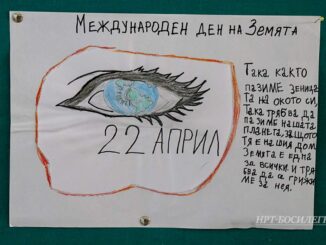 МЕЖДУНАРОДЕН ДЕН НА ЗЕМЯТА
22 АПРИЛ
ТАКА КАКТО
ПАЗИМЕ ЗЕНИЦА
ТА НА ОКОТО СИ,
ТАКА ТРЯБВА ДА
ПАЗИМЕ НАШАТА
ПЛАНЕТА, ЗАЩОТО
ТЯ Е НАШИЯ ДОМ.
ЗЕМЯТА Е ЕДНА
ЗА ВСИЧКИ И ТРЯ
БВА ДА СЕ ГРИЖИ
МЕ ЗА НЕЯ.
НРТ-БОСИЛЕГ